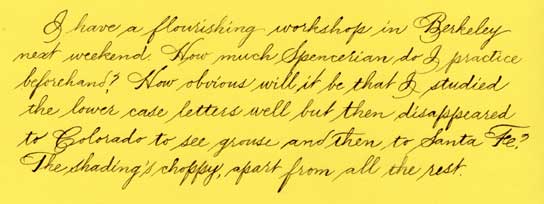 I have a flourishing workshop in Berkeley
next weekend. How much Spencerian do I practice
beforehand? How obvious will it be that I studied
the lower case letters well but then disappeared
to Colorado to see grouse and then to Santa Fee?
The shading's choppy, apart from all the rest.